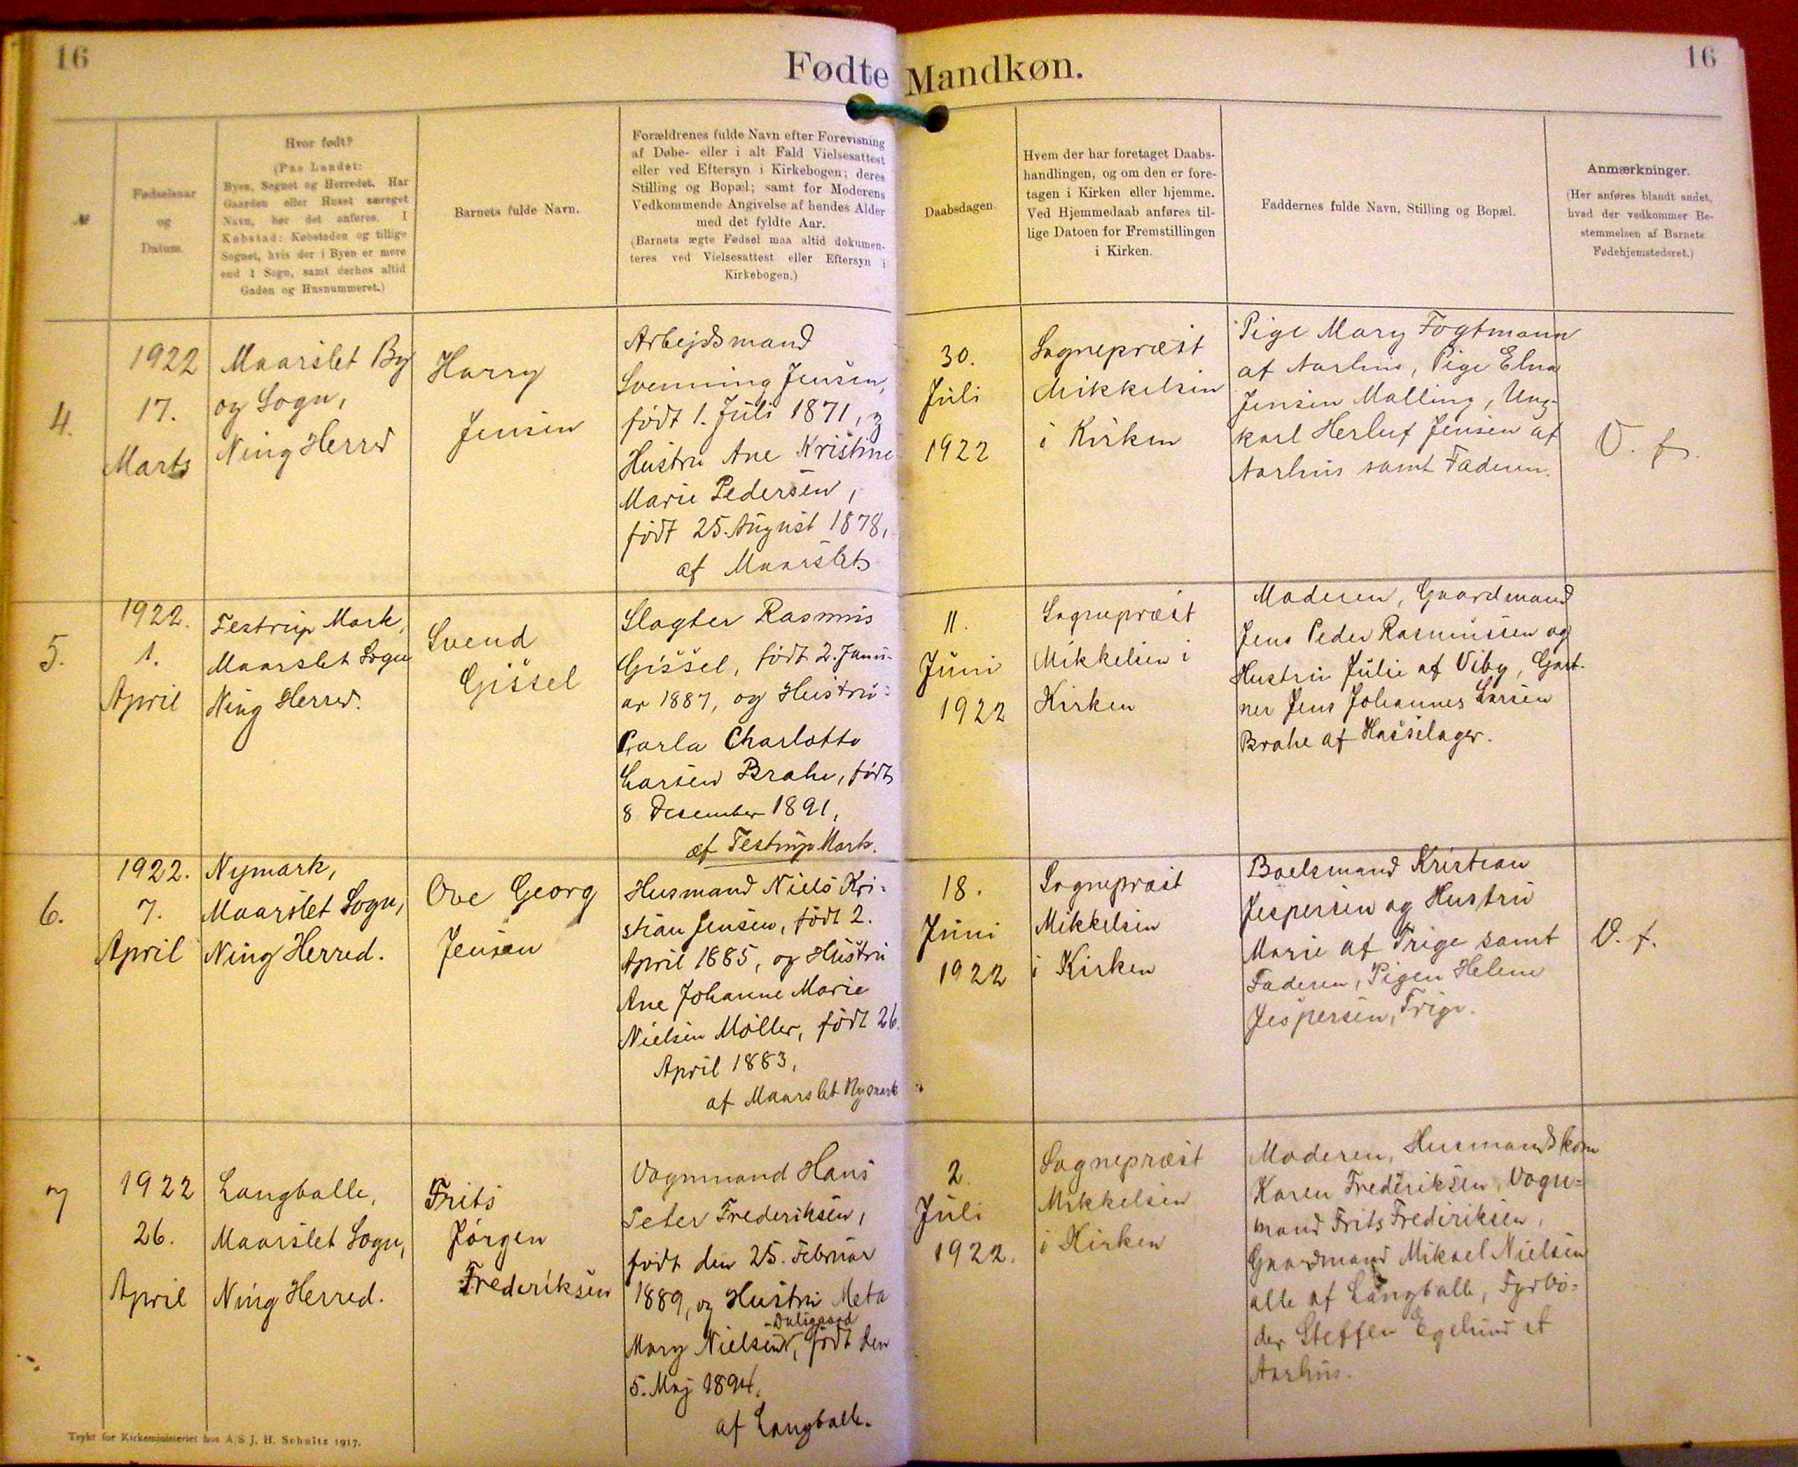 16
Fødte Mandkøn.
16
№
Fødselsaar
og
Datum.
Hvor født?
(Paa Landet:
Byen, Sognet og Herredet. Har
Gaarden eller Huset særeget
Navn, bør det anføres. I
Købstad: Købstaden og tillige
Sognet, hvis der i Byen er mere
end 1 Sogn, samt derhos altid
Gaden og Husnummeret.)
Barnets fulde Navn.
Forældrenes fulde Navn efter Forevisning
af Døbe- eller i alt Fald Vielsesattest
eller ved Eftersyn i Kirkebogen; deres
Stilling og Bopæl; samt for Moderens
Vedkommende Angivelse af hendes Alder
med det fyldte Aar.
(Barnets ægte Fødsel maa altid dokumen-
teres ved Vielsesattest eller Eftersyn i
Kirkebogen.)
Daabsdagen.
Hvem der har foretaget Daabs-
handlingen, og om den er fore-
tagen i Kirken eller hjemme.
Ved Hjemmedaab anføres til-
lige Datoen for Fremstillingen
i Kirken.
Faddernes fulde Navn, Stilling og Bopæl.
Anmærkninger.
(Her anføres blandt andet,
hvad der vedkommer Be-
stemmelsen af Barnets
Fødehjemstedsret.)
4.
1922
17.
Marts
Maarslet By
og Sogn,
Ning Herred
Harry
Jensen
Arbejdsmand
Svenning Jensen,
født 1. Juli 1871, og
Hustru Ane Kristine
Marie Pedersen,
født 25. August 1878,
af Maarslet
30.
Juli
1922
Sognepræst
Mikkelsen
i Kirken
Pige Mary Fogtmann
af Aarhus, Pige Elna
Jensen Malling, Ung-
karl Herluf Jensen af
Aarhus samt Faderen.
V. f.
5.
1922.
1.
April
Testrup Mark,
Maarslet Sogn
Ning Herred.
Svend
Gissel
Slagter Rasmus
Gissel, født 2. Janu-
ar 1887, og Hustru:
Carla Charlotte
Larsen Brahe, født
8 December 1891,
af Testrup Mark.
11.
Juni
1922
Sognepræst
Mikkelsen i
Kirken
Moderen, Gaardmand
Jens Peder Rasmussen og
Hustru Julie af Viby, Gart-
ner Jens Johannes Larsen
Brahe af Hasselager.
6.
1922.
7.
April
Nymark,
Maarslet Sogn,
Ning Herred.
Ove Georg
Jensen
Husmand Niels Kri-
stian Jensen, født 2.
April 1885, og Hustru
Ane Johanne Marie
Nielsen Møller, født 26.
April 1883,
af Maarslet Nymark
18.
Juni
1922
Sognepræst
Mikkelsen
i Kirken
Boelsmand Kristian
Jespersen og Hustru
Marie af Trige samt
Faderen, Pigen Helene
Jespersen, Trige.
V. f.
7
1922
26.
April
Langballe,
Maarslet Sogn,
Ning Herred.
Frits
Jørgen
Frederiksen
Vognmand Hans
Peter Frederiksen,
født den 25. Februar
1889, og Hustru Meta
Mary Nielsen, født den
5. Maj 1894,
af Langballe.
2.
Juli
1922.
Sognepræst
Mikkelsen
i Kirken
Moderen, Husmandskone
Karen Frederiksen, Vogn-
mand Frits Frederiksen,
Gaardmand Mikael Nielsen
alle af Langballe, Fyrbø-
der Steffen Egelund af
Aarhus.
Trykt for Kirkeministeriet hos A/S J. H. Schultz 1917.